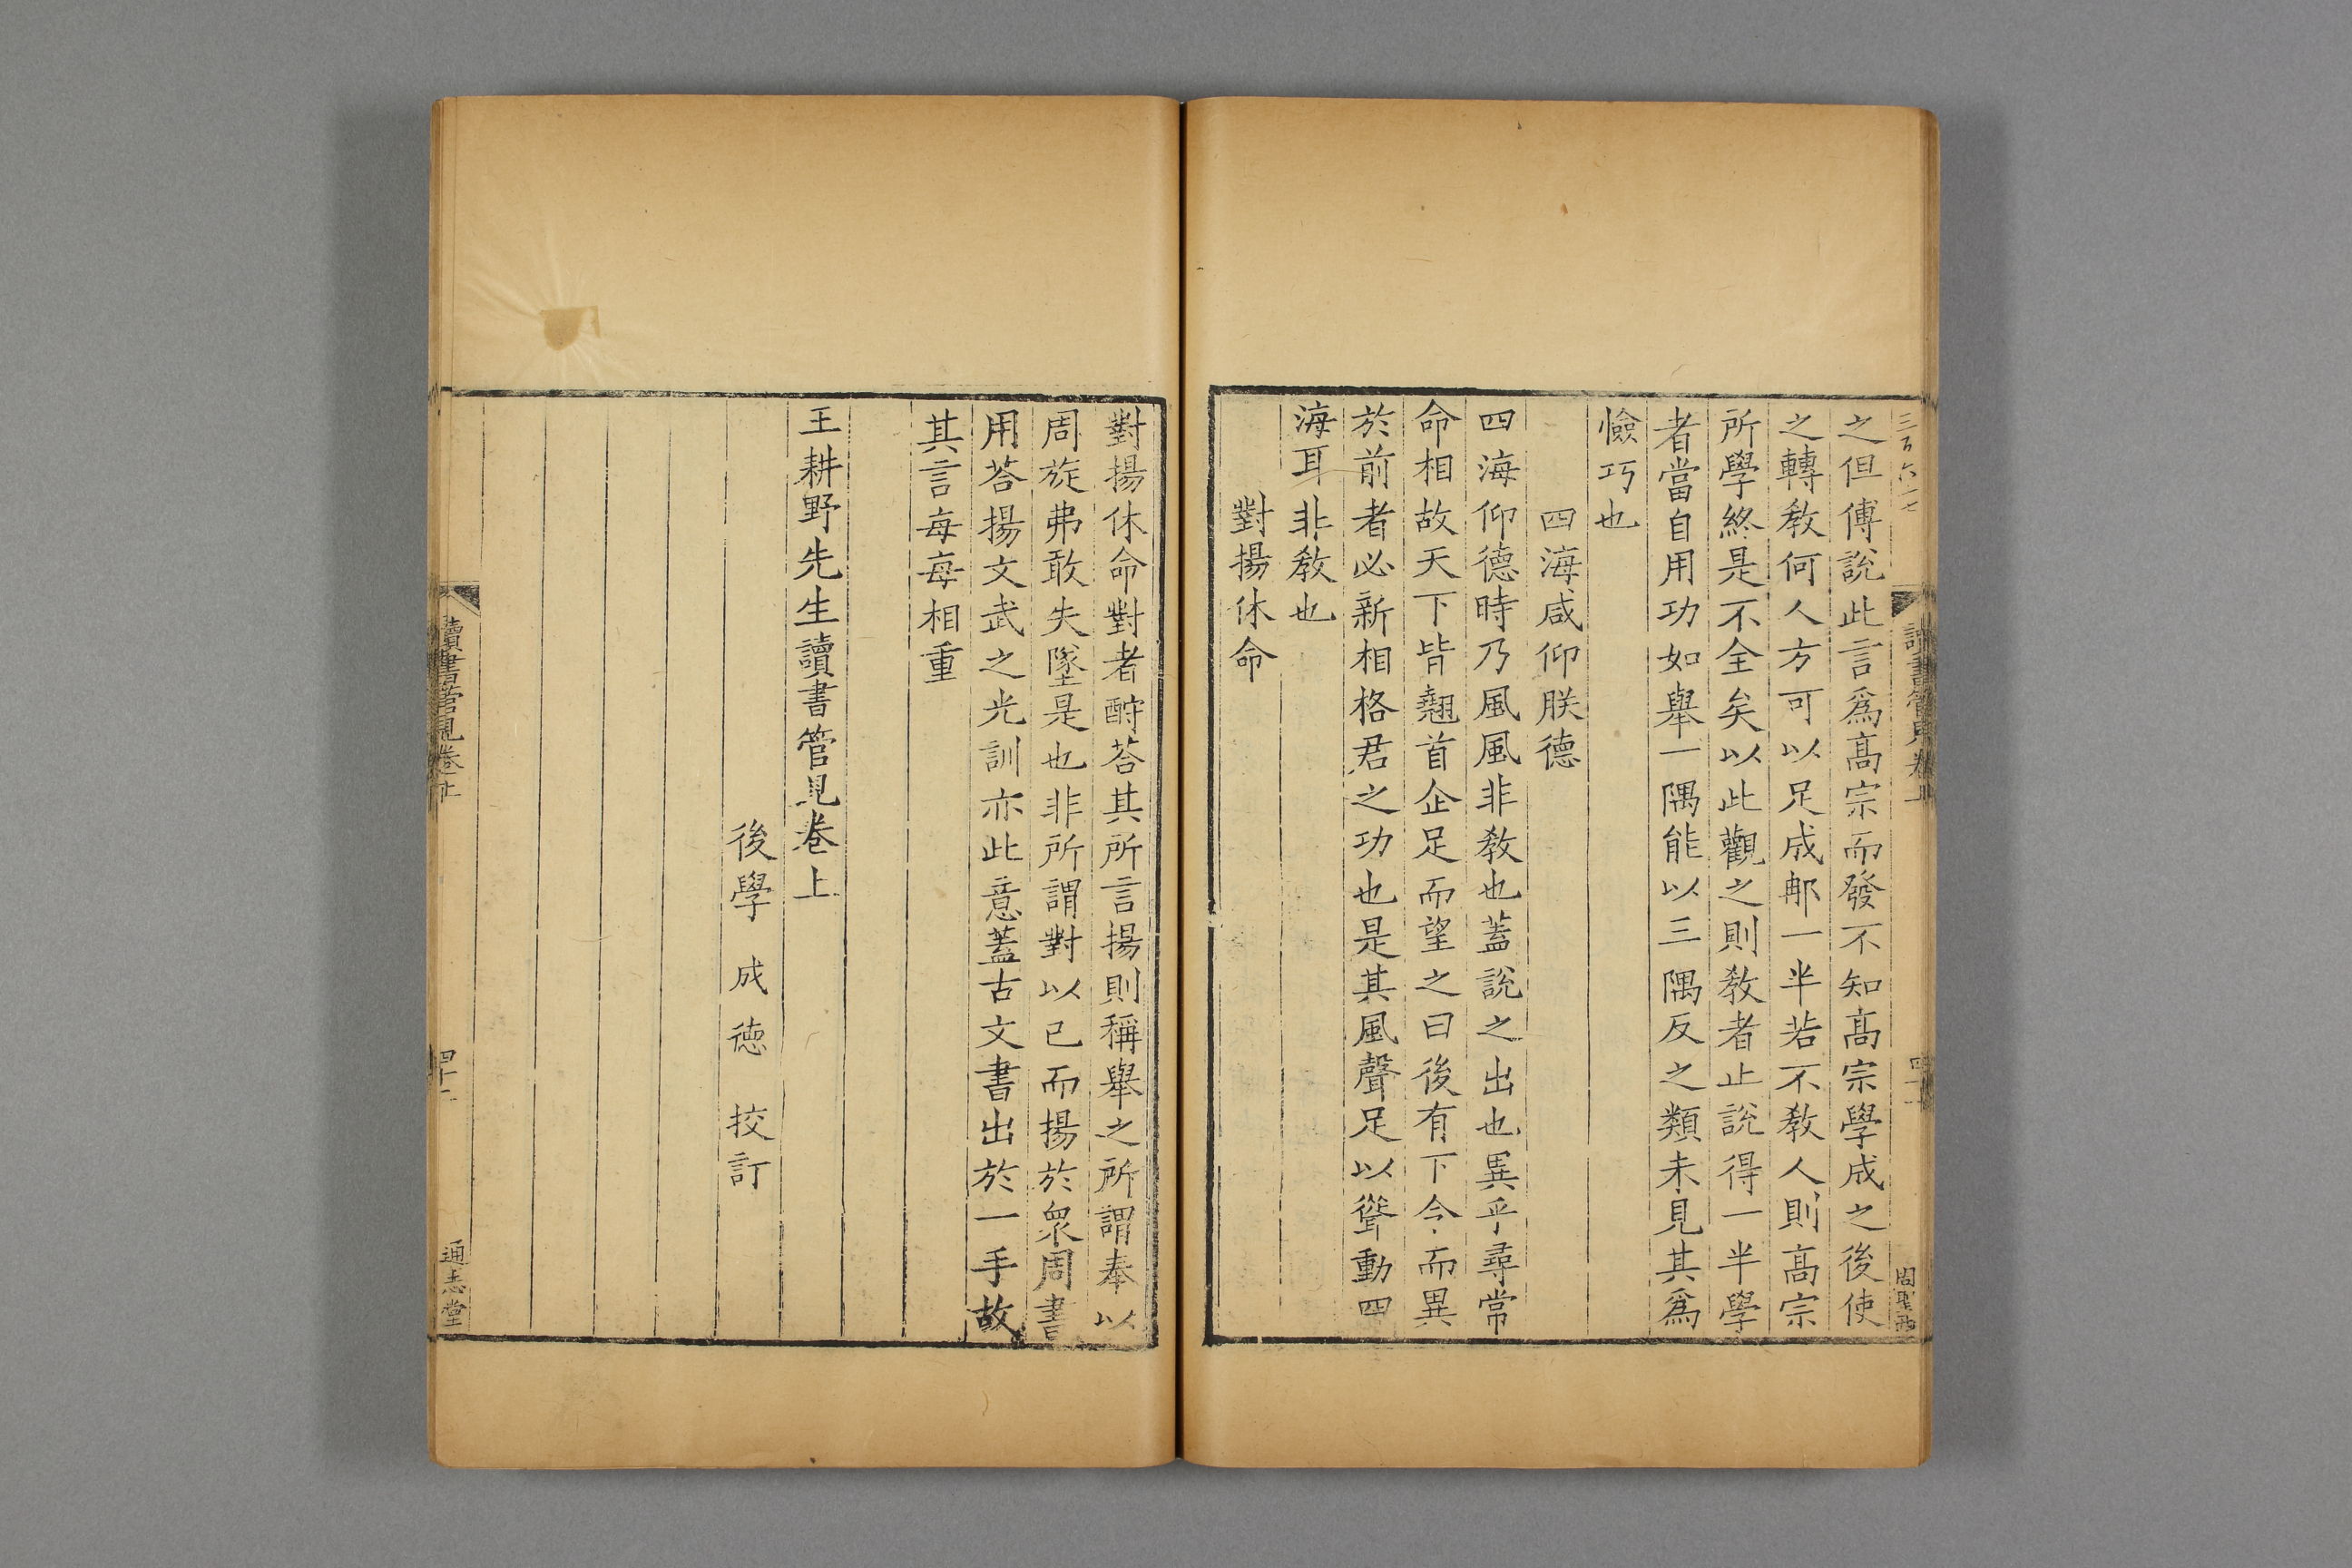 之但傅說此言爲髙宗而發不知髙宗學成之後使
之轉教何人方可以足成郍一半若不教人則髙宗
所學終是不全矣以此觀之則教者止說得一半學
者當自用功如舉一隅能以三隅反之類未見其爲
憸巧也
四海咸仰朕德
四海仰德時乃風風非教也蓋說之出也異乎尋常
命相故天下皆翹首企足而望之曰後有下令而異
於前者必新相格君之功也是其風聲足以聳動四
海耳非教也
對揚休命
對揚休命對者酧荅其所言揚則稱舉之所謂奉以
周旋弗敢失墜是也非所謂對以已而揚於衆周書
用荅揚文武之光訓亦此意蓋古文書出於一手故
其言每每相重
王耕野先生讀書管見卷上
後學 成德 挍訂
讀書管見卷上
四十二
通志堂